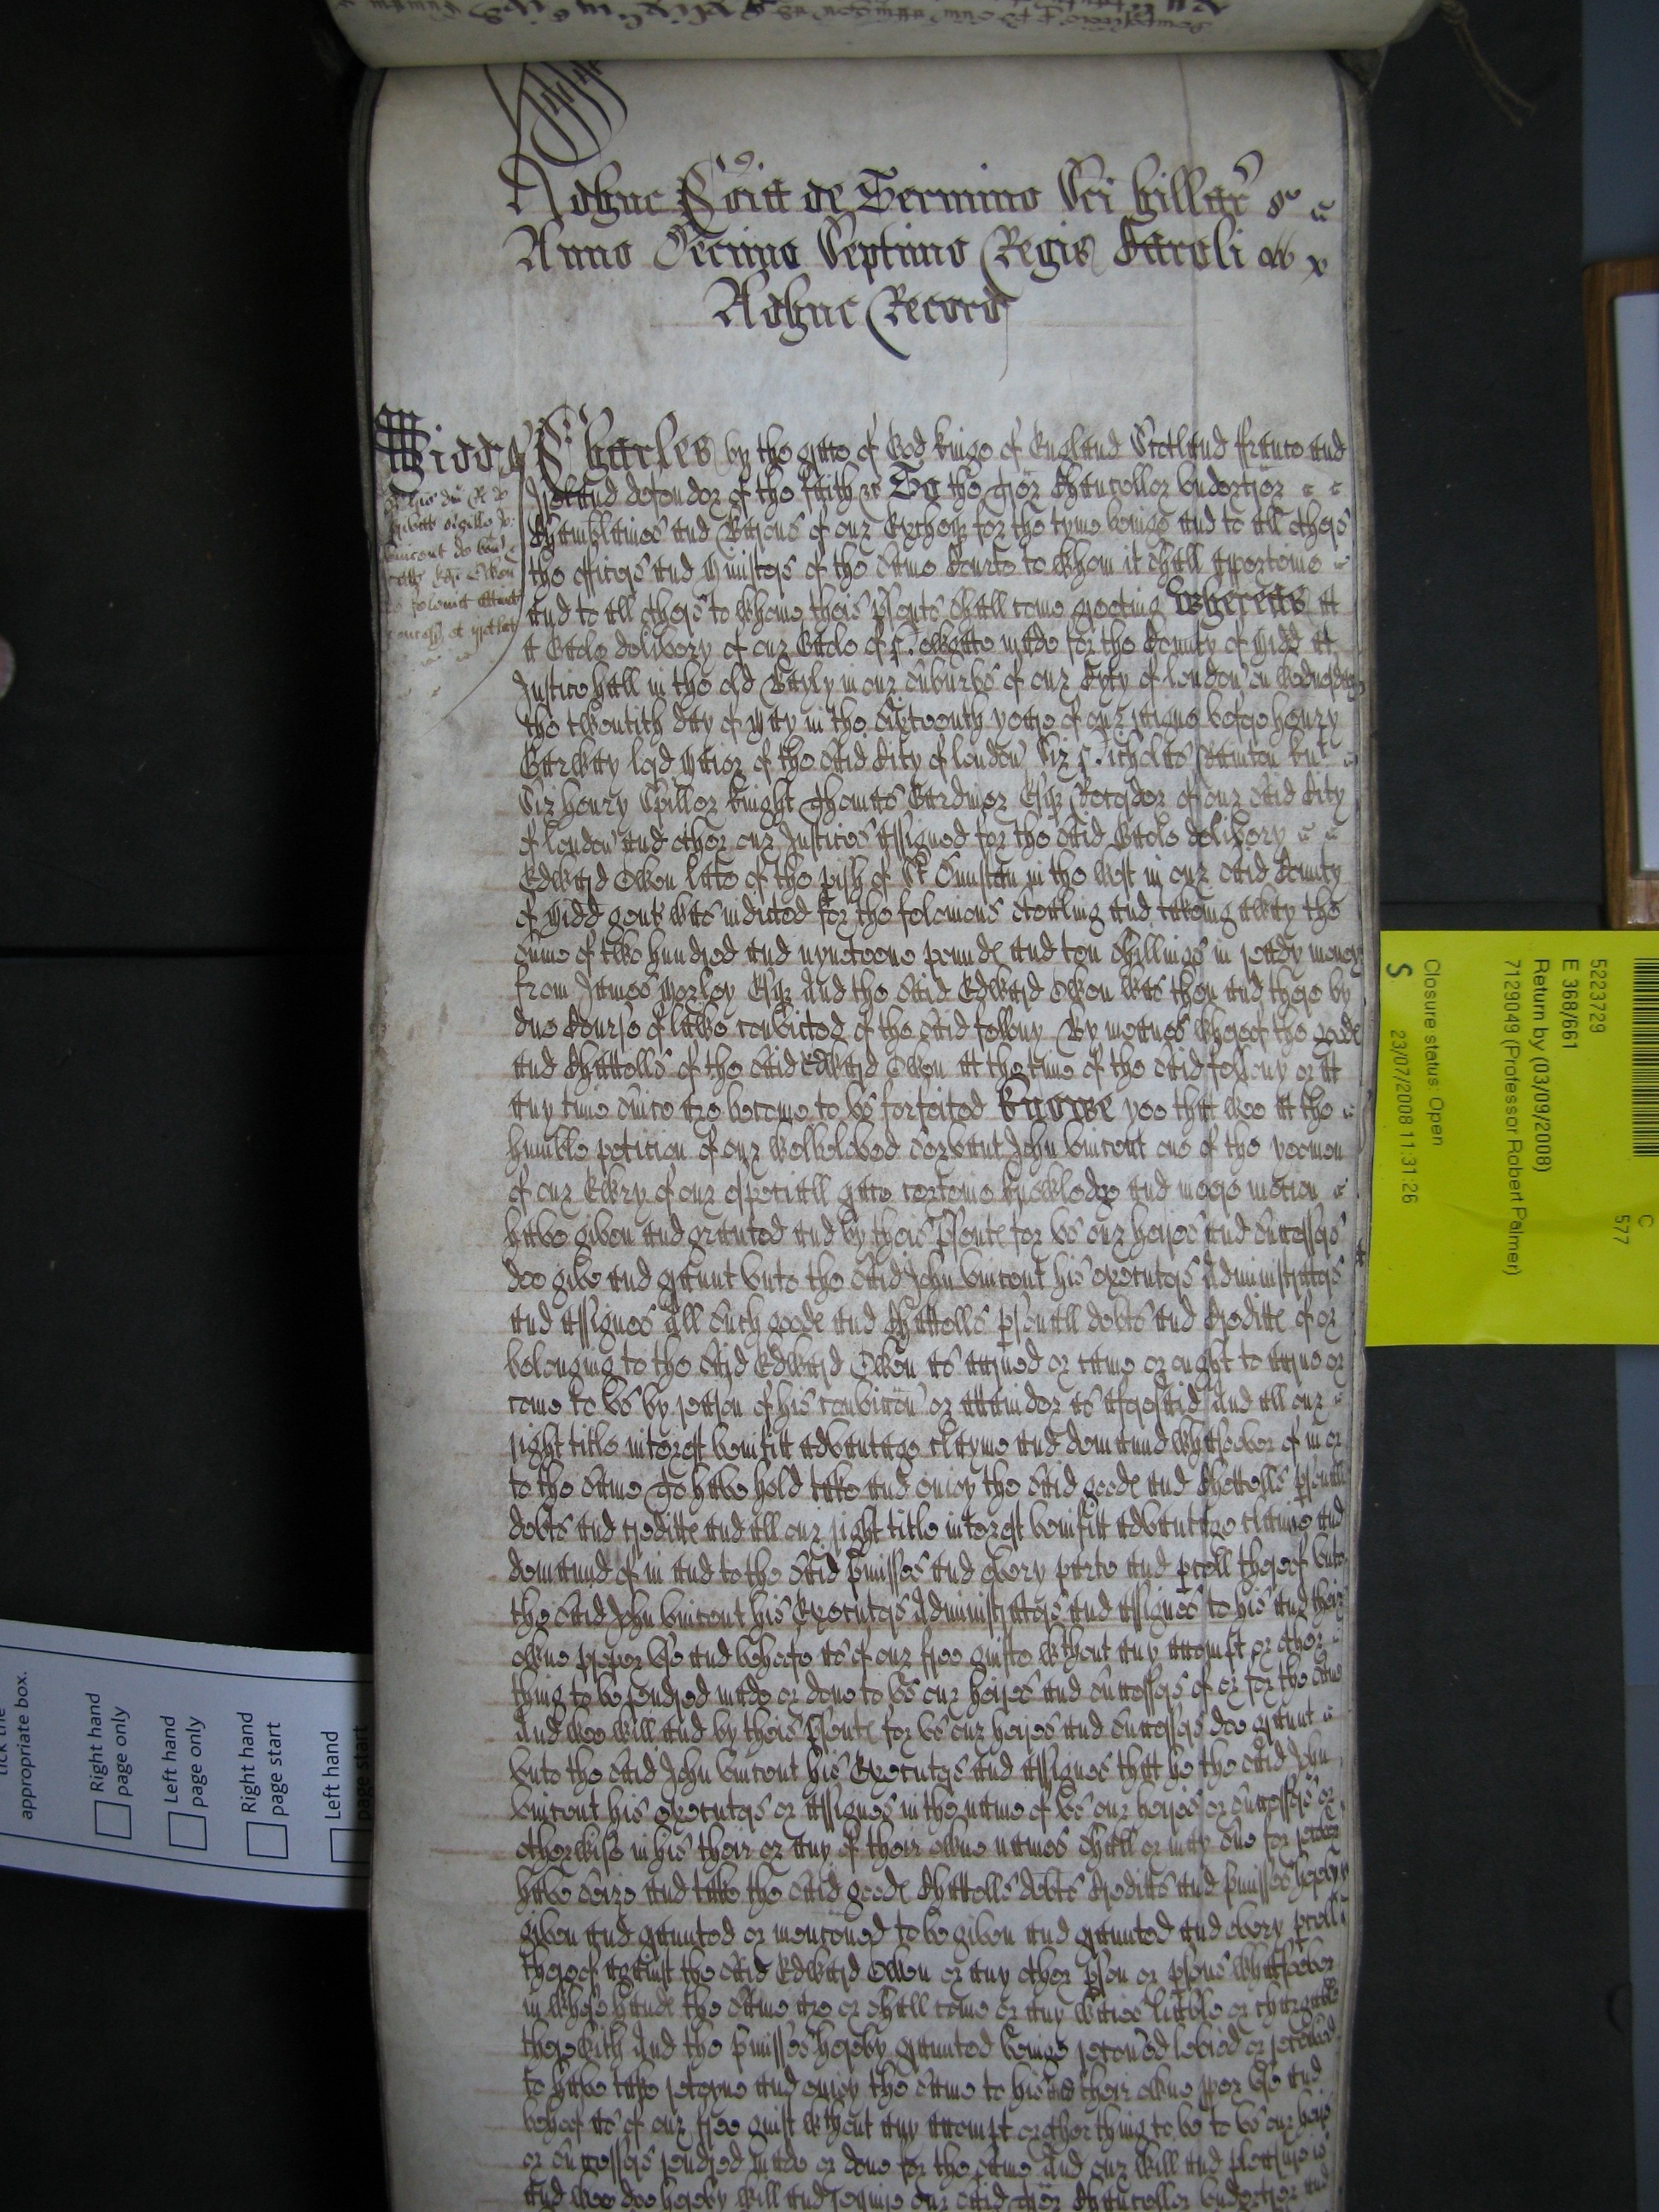 Adhuc Coia de Termino Sci Hillar
Anno Decimo Septimo Regis Caroli
Adhuc Record
Midd Charles by the grace of God kinge of England Scotland ffrance and
Ireland defendor of the faith &c To the Trer Chauncellor undertrer
Chamblaines and Barons of our Excheqr for the tyme beinge and to all others
the officers and Ministers of the same Courte to whom it shall apperteine
and to all others to whome theis psents shall come greeting Whereas at
a Gaole delivery of our Gaole of Newgate made for the County of Midd at
Justice hall in the old Bayly in our suburbs of our Cyty of london on Wednesday
the twentith day of May in the sixteenth yeare of our raigne before henry
Garway lord Maior of the said City of london Sir Nicholas Rainton knt
Sir henry Spiller knight Thomas Gardiner Esqr Recorder of our said City
of london and other our Justices assigned for the said Gaole delivery
Edward Owen late of the pish of St Dunstan in the west in our said County
of Midd gent was indicted for the felonious stealing and takeing away the
sume of two hundred and nyneteene pounds and ten shillings in ready money
from James Morley Esqr And the said Edward Owen was then and there by
due Course of lawe convicted of the said fellony By meanes whereof the goods
and Chattells of the said Edward Owen at the time of the said fellony or at
any time since are become to us forfeited Knowe yee that wee at the
humble peticion of our welbeloved servant John Vincent one of the yeomen
of our Ewry of our especiall grace certeine knowledge and meere motion
have given and graunted and by theis psents for us our heires and successors
doe give and graunt unto the said John Vincent his executors Administrators
and assignes All such goods and Chattells psonall debts and Creditts of or
belonging to the said Edward Owen as accrued or came or ought to accrue or
come to us by reason of his conviccon or attaindor as aforesaid And all our
right title interest benifitt advantage clayme and demaund whatsoever of in or
to the same To have hold take and enjoy the said goods and Chattells psonall
debts and creditts and all our right title interest benifitt advantage claime and
demaund of in and to the said pmisses and every parte and pcell thereof unto
the said John Vincent his Executors Administrators and assignes to his and their
owne proper use and behoofe as of our free guifte without any accompt or other
thing to be rendred made or done to us our heires and successors of or for the same
And wee will and by theis psents for us our heires and successors doe graunt
unto the said John Vincent his Executors and assignes that he the said John
Vincent his executors or assignes in the name of us our heires or successors or
otherwise in his their or any of their owne names shall or may sue for recover
have seize and take the said goods Chattells debts Creditts and pmisses hereby
given and graunted or menconed to be given and graunted and every pcell
thereof against the said Edward Owen or any other pson or psons whatsoever
in whose hands the same are or shall come or any waies liable or chargable
therewith And the pmisses hereby graunted beinge recovered levied or received
to have take reteyne and enjoy the same to his and their owne pper use and
behoof as of our free guift without any accompt or other thing to be to us our heires
or successors rendred made or done for the same And our will and pleasure is
And wee doe hereby will and require our said Trer Chauncellor undertrer and
tick the
appropriate box.
Right hand
page only
Left hand
page only
Right hand
page start
Left hand
page start
C
577
5223729
E 368/661
Return by (03/09/2008)
7129049 (Professor Robert Palmer)
Closure status: Open
S 23/07/2008 11:31:26